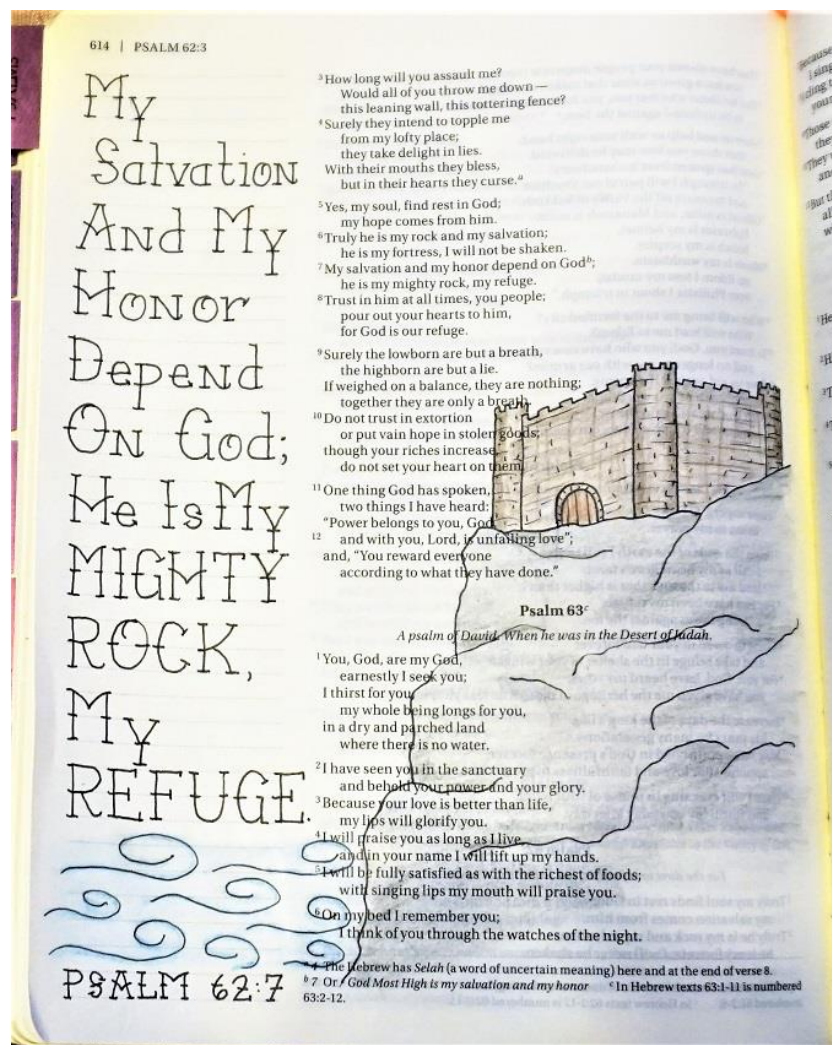 614 | PSALM 62:3
My
Salvation
And My
Honor
Depend
On God;
He Is My
MIGHTY
ROCK,
My
REFUGE.
PSALM 62:7
3 How long will you assault me?
Would all of you throw me down —
this leaning wall, this tottering fence?
4 Surely they intend to topple me
from my lofty place;
they take delight in lies.
With their mouths they bless,
but in their hearts they curse.a
5 Yes, my soul, find rest in God;
my hope comes from him.
6 Truly he is my rock and my salvation;
he is my fortress, I will not be shaken.
7 My salvation and my honor depend on Godb;
he is my mighty rock, my refuge.
8 Trust in him at all times, you people;
pour out your hearts to him,
for God is our refuge.
9 Surely the lowborn are but a breath,
the highborn are but a lie.
If weighed on a balance, they are nothing;
together they are only a breath.
10 Do not trust in extortion
or put vain hope in stolen goods;
though your riches increase,
do not set your heart on them.
11 One thing God has spoken,
two things I have heard:
“Power belongs to you, God,
12 and with you, Lord, is unfailing love”;
and, “You reward everyone
according to what they have done.”
Psalm 63c
A psalm of David. When he was in the Desert of Judah.
1 You, God, are my God,
earnestly I seek you;
I thirst for you,
my whole being longs for you,
in a dry and parched land
where there is no water.
2 I have seen you in the sanctuary
and behold your power and your glory.
3 Because your love is better than life,
my lips will glorify you.
4 I will praise you as long as I live,
and in your name I will lift up my hands.
5 I will be fully satisfied as with the richest of foods;
with singing lips my mouth will praise you.
6 On my bed I remember you;
I think of you through the watches of the night.
a 4 The Hebrew has Selah (a word of uncertain meaning) here and at the end of verse 8.
b 7 Or / God Most High is my salvation and my honor c In Hebrew texts 63:1-11 is numbered
63:2-12.